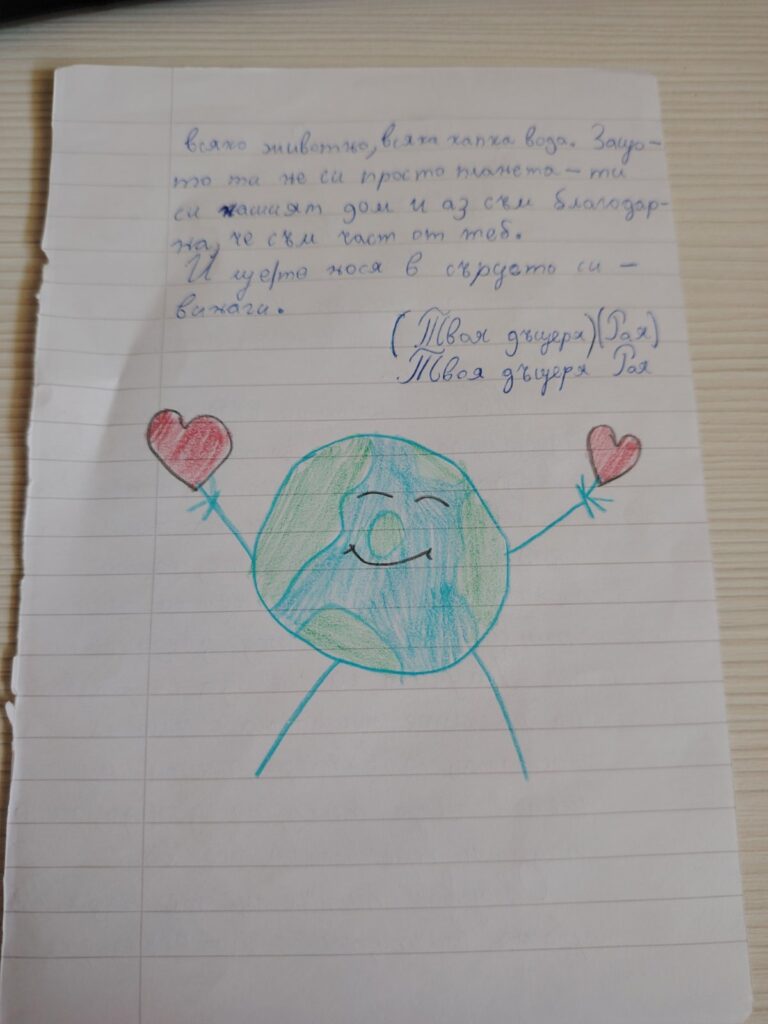 всяко животно, всяка капка вода. Защо-
то ти не си просто планета – ти
си нашият дом и аз съм благодар-
на, че съм част от теб.
И ще те нося в сърцето си –
винаги.
(Твоя дъщеря)(Рая)
Твоя дъщеря Рая